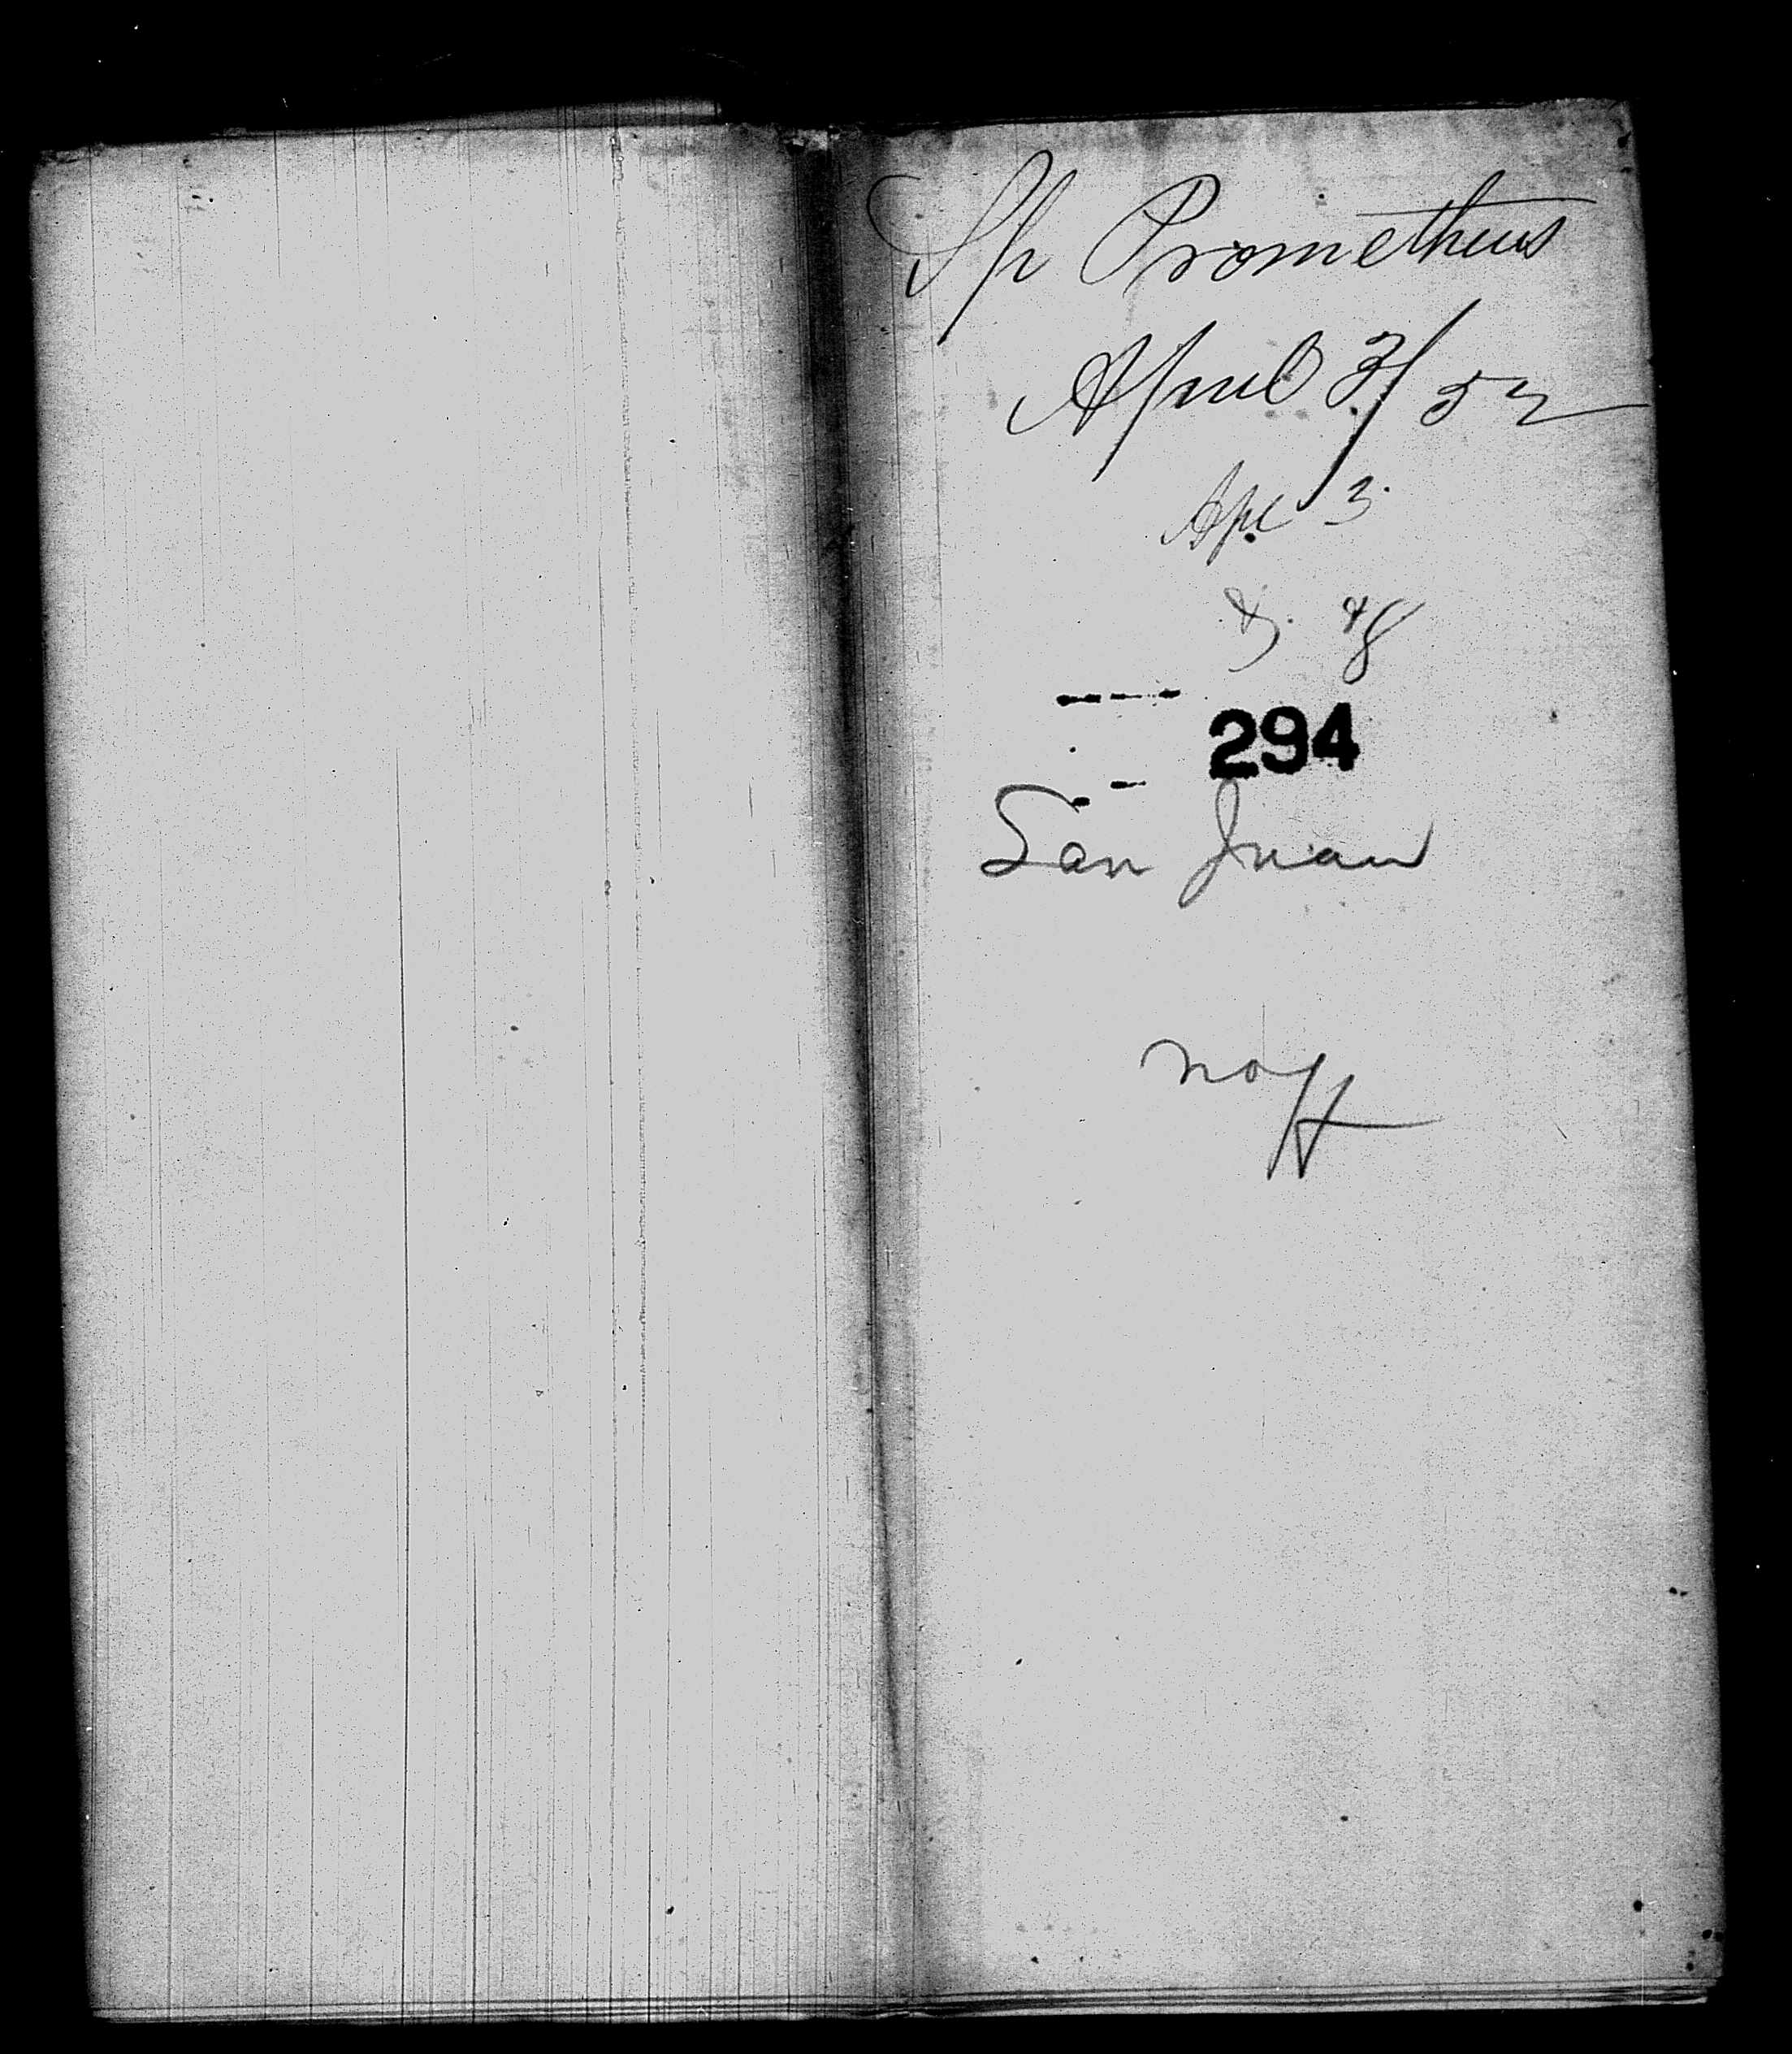 Sp Prometheus
April 3/52
Apl 3.
294
San Juan